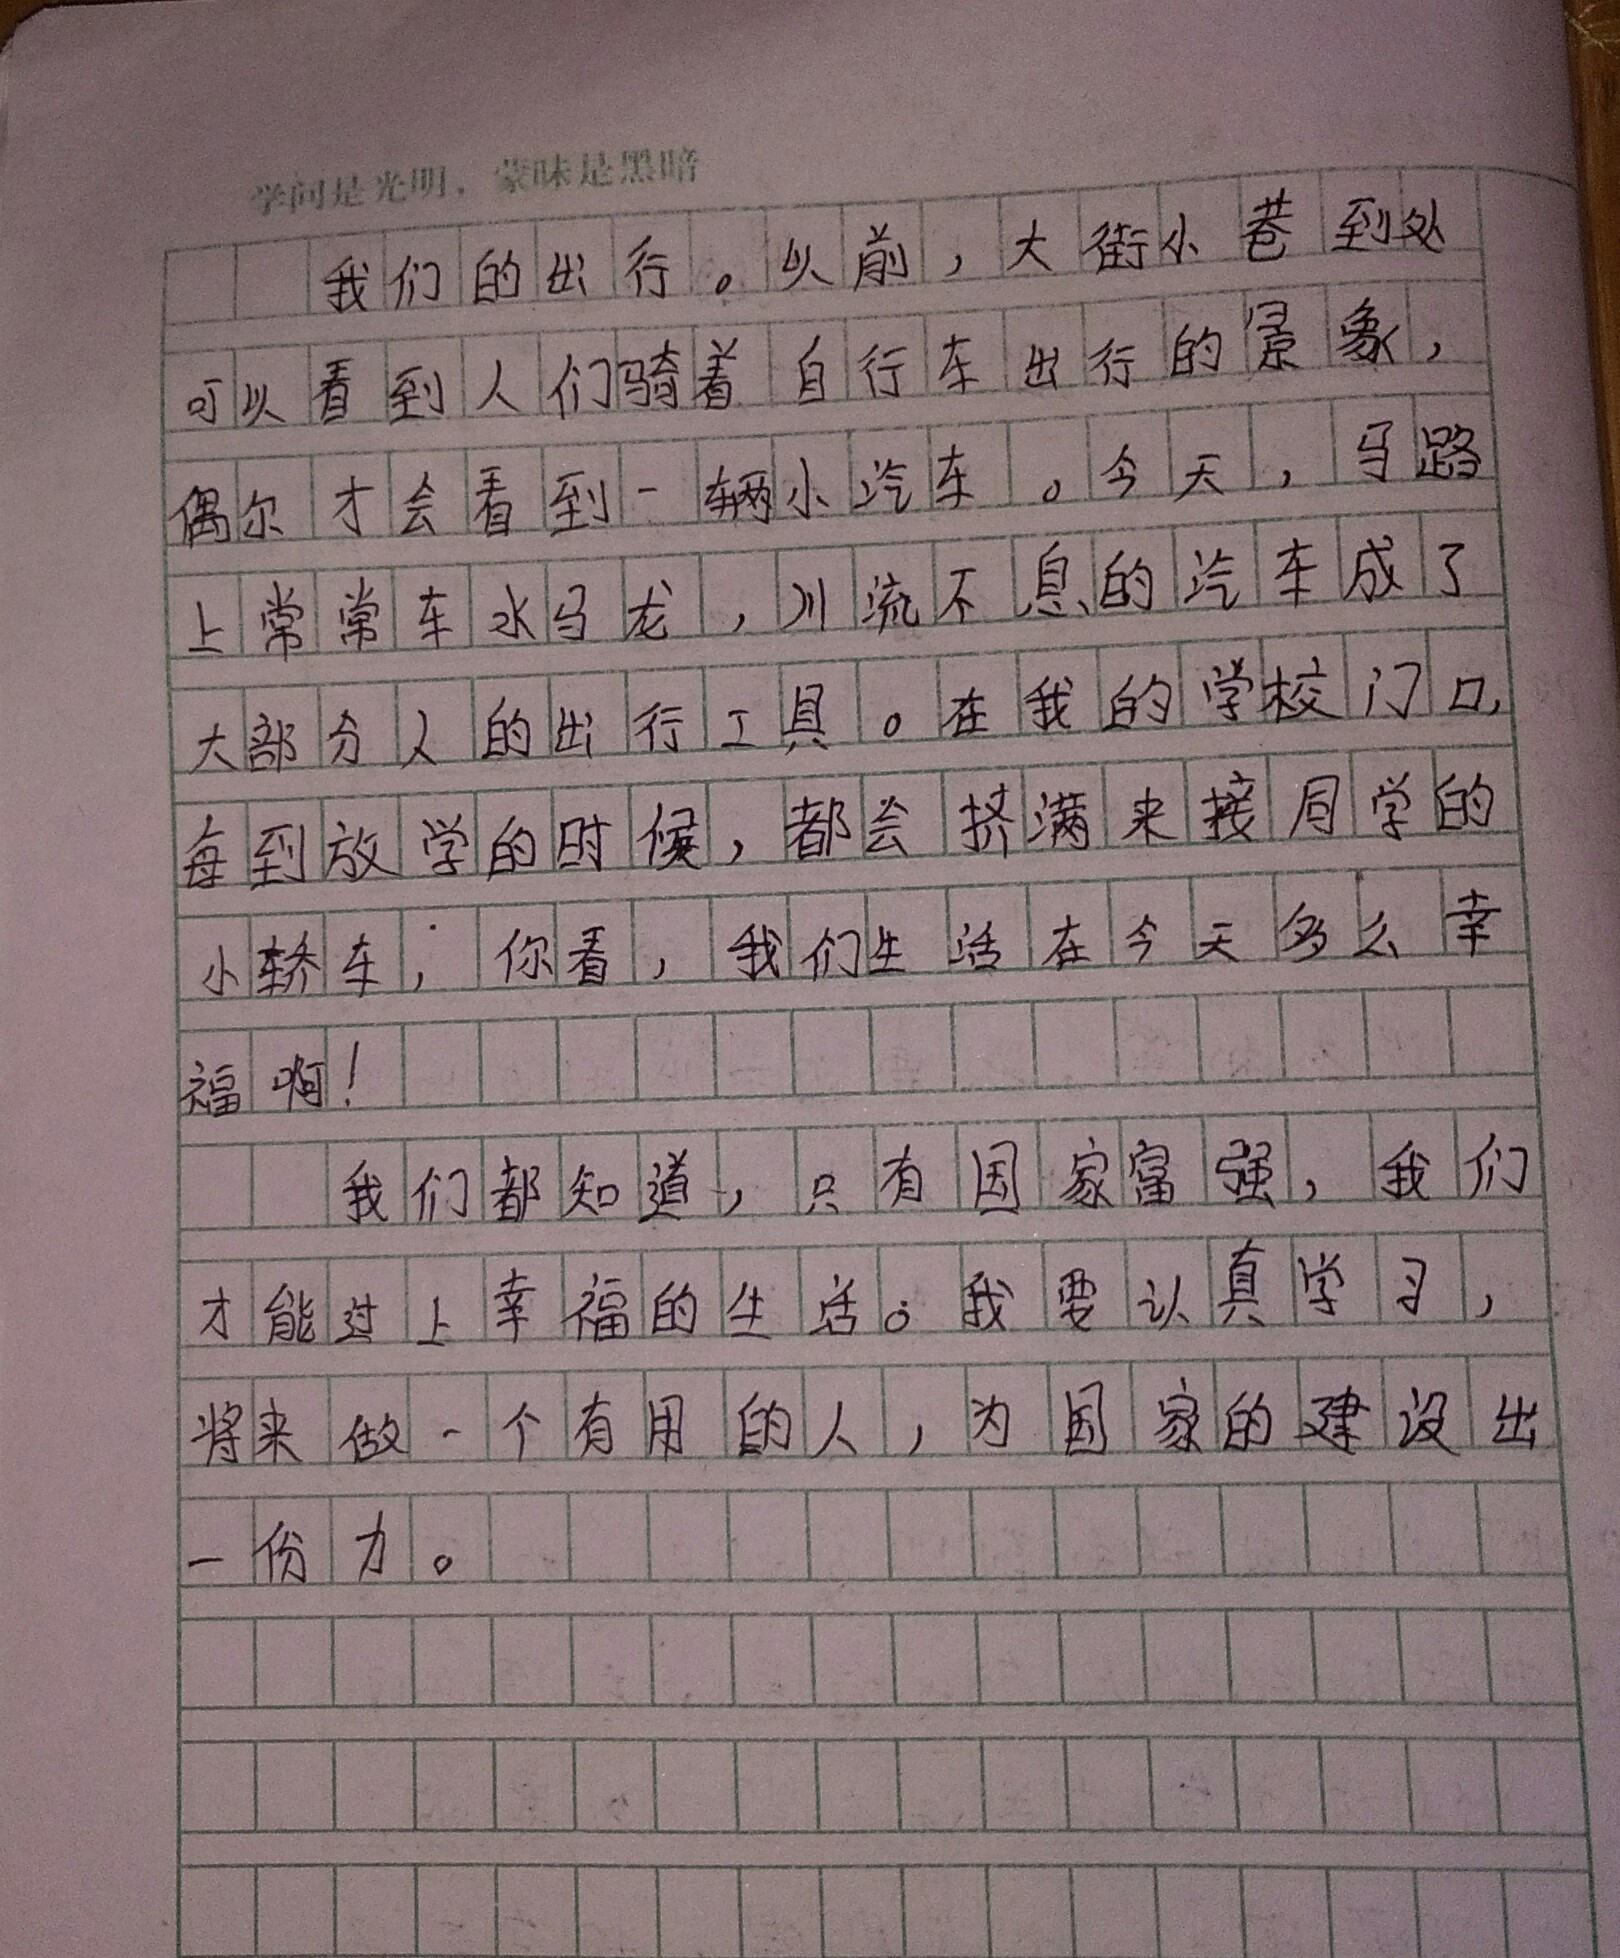 学问是光明，蒙昧是黑暗
我们的出行。以前，大街小巷到处
可以看到人们骑着自行车出行的景象，
偶尔才会看到一辆小汽车。今天，马路
上常常车水马龙，川流不息的汽车成了
大部分人的出行工具。在我的学校门口，
每到放学的时候，都会挤满来接同学的
小轿车；你看，我们生活在今天多么幸
福啊！
我们都知道，只有国家富强，我们
才能过上幸福的生活。我要认真学习，
将来做一个有用的人，为国家的建设出
一份力。